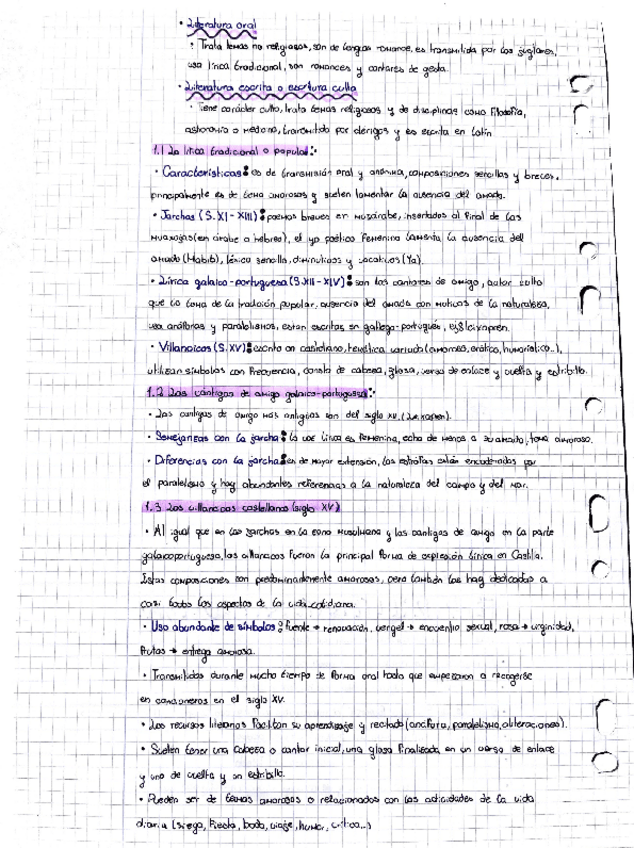 • Literatura oral
• Trata temas no religiosos, son de lenguas romance, es transmitida por los juglares,
usa lírica tradicional, son romances y cantares de gesta.
• Literatura escrita o escritura culta
• Tiene carácter culto, trata temas religiosos y de disciplinas como Filosofía,
astronomía o medicina, transmitido por clérigos y es escrita en Latín
1.1 La lírica tradicional o popular:
• Características: es de transmisión oral y anónima, composiciones sencillas y breves,
principalmente es de tema amorosos y suelen lamentar la ausencia del amado.
• Jarchas (S.XI-XIII): poemas breves en mozárabe, insertados al final de las
muaxajas (en árabe o hebreo), el yo poético femenino lamenta la ausencia del
amado (Habib), léxico sencillo, diminutivos y vocativos (Ya).
• Lírica galaico-portuguesa (S.XII-XIV): son las cantares de amigo, autor culto
que lo toma de la tradición popular, ausencia del amado con motivos de la naturaleza,
usa anáforas y paralelismos, estan escritas en gallego-portugués,
• Villancicos (S.XV): escrito en castellano, temática variada (amorosa, erótica, humorística..),
utilizan símbolos con frecuencia, consta de cabeza, glosa, verso de enlace y vuelta y estribillo.
1.2 Las cantigas de amigo galaico-portuguesa:
• Las cantigas de amigo más antiguas son del siglo XV.
• Semejanzas con la jarcha: la voz lírica es femenina, echa de menos a su amado, tema amoroso.
• Diferencias con la jarcha: es de mayor extensión, las estrofas están encadenadas por
el paralelismo y hay abundantes referencias a la naturaleza del campo y del mar.
1.3 Los villancicos castellanos (siglo XV)
• Al igual que en las jarchas en la zona musulmana y las cantigas de amigo en la parte
galaicoportuguesa, los villancicos fueron la principal forma de expresión lírica en Castilla.
Estas composiciones son predominantemente amorosas, pero también las hay dedicadas a
casi todos los aspectos de la vida cotidiana.
• Uso abundante de símbolos: fuente → renovación, vergel → encuentro sexual, rosa → virginidad,
frutas → entrega amorosa.
• Transmitidas durante mucho tiempo de forma oral hasta que empezaron a recogerse
en cancioneros en el siglo XV.
• Los recursos literarios facilitan su aprendizaje y recitado (anáfora, paralelismo, aliteraciones).
• Suelen tener una cabeza o cantar inicial, una glosa finalizada en un verso de enlace
y uno de vuelta y un estribillo.
• Pueden ser de temas amorosos o relacionados con las actividades de la vida
diaria (siega, fiesta, boda, viaje, humor, crítica..)